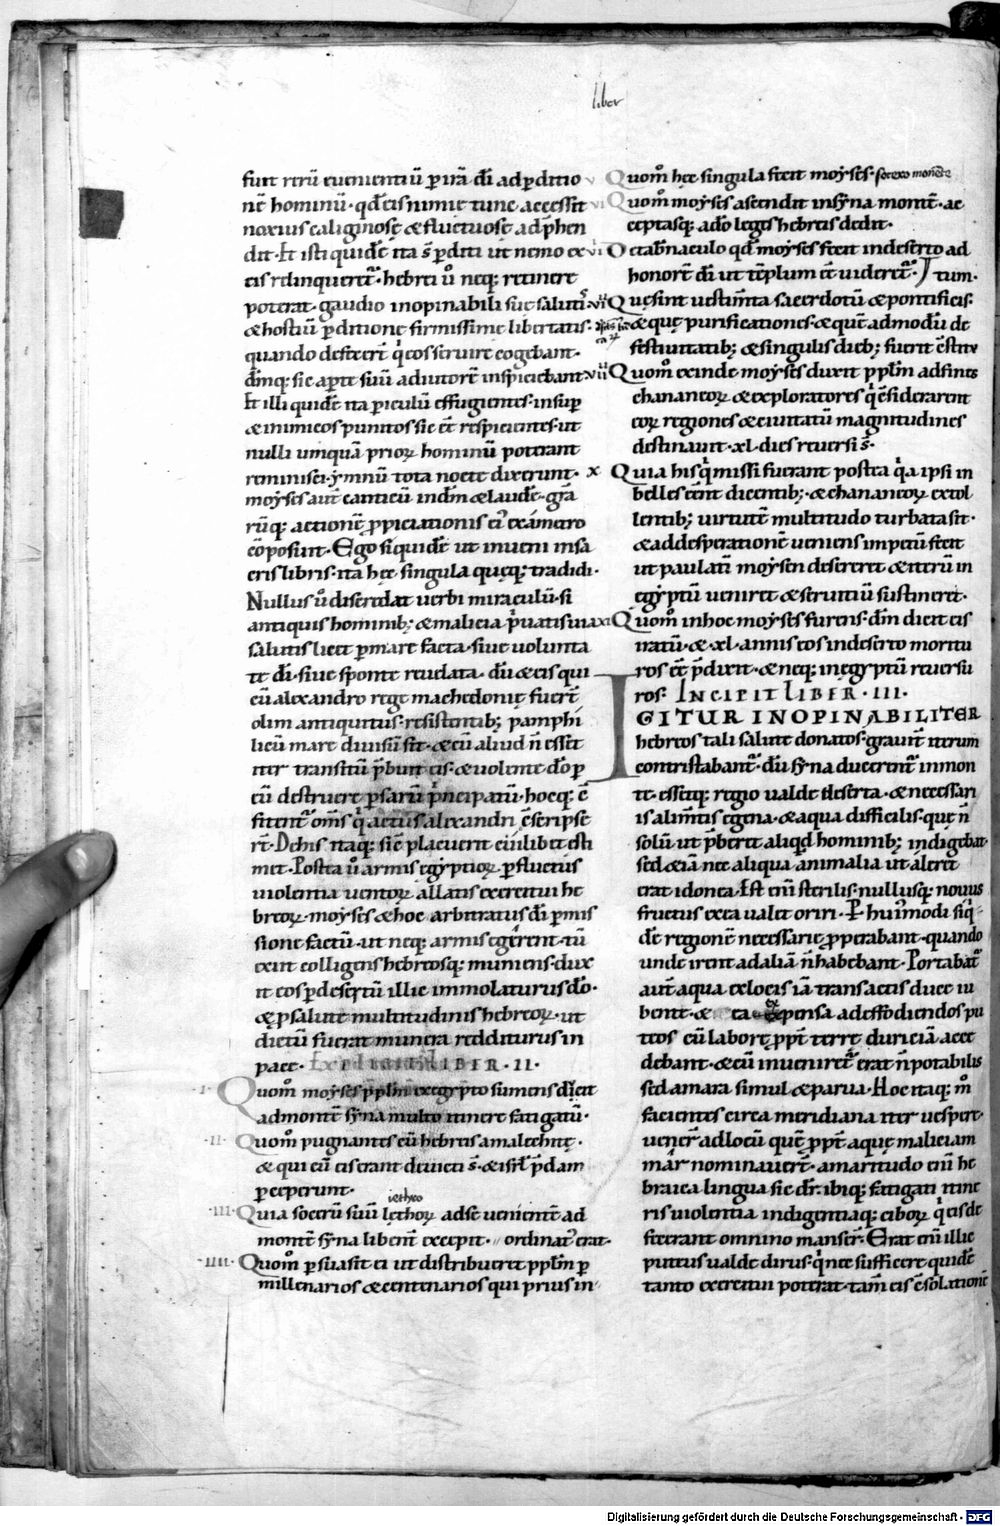 liber
funt rerū euenientiū ꝑ irā dī ad ꝑditio
nē hominū · qd̄ eis nimie tunc accessit
noxius caliginosę & fluctuosę ad p̄hen
dit · Et isti quidē ita s̄ ꝑditi ut nemo ex
eis relinqueret · hebrei ū neq; retinere
poterat · gaudio inopinabili suę saluti
& hostiū ꝑditione firmissime libertatis ·
quando defecer̄ qͥ eos seruire cogebant ·
d̄inq; sic aꝑte suū adiutorē inspiciebant
Et illi quidē ita ꝑiculū effugientes · insup
& inimicos punitos sic eē respicientes · ut
nulli umquā prioꝝ hominū poterant
reminisci · ymnū tota nocte dixerunt ·
moyses aut̄ canticū in dm̄ & laudē · grā
rūq; actionē ꝓpiciationis ei exámetro
cōposuit · Ego siquidē ut inueni in sa
cris libris · ita hec singula quęq; tradidi ·
Nullus ū discredat uerbi miraculū · si
antiquis hominib; & malicia p̄uatis uia
salutis licet ꝑ mare facta · siue uolunta
te dī · siue sponte reuelata · dū & eis qui
cū alexandro rege machedonię fuer̄
olim antiquitus · resistentib; pamphi
licū mare diuisū sit · & cū aliud n̄ esset
iter transitū p̄buit eis · & uolente dō ꝑ
eū destruere ꝑsarū p̄ncipatū · hocq; c̄
fitent̄ om̄s qͥ actus alexandri c̄scripse
rt · De his itaq; sic placuerit cuilibet esti
met · Postea ū armis egyptioꝝ ꝑ fluctus
uiolentia uentoꝝ allatis exercitui he
breoꝝ · moyses & hoc arbitratus dī ꝑmis
sione factū · ut neq; armis egerent · tū
exin colligens hebreosq; muniens · dux
it eos ꝑ desertū illic immolaturus dō ·
& ꝓ salute multitudinis hebreoꝝ · ut
dictū fuerat munera redditurus in
pace · Explicit LIBER · II ·
·I· Quom̊ moyses pplm̄ ex egypto sumens dixit
ad montē syna multo itinere fatigatū ·
·II· Quom̊ pugnantes cū hebreis amalechitę ·
& qui cū eis erant deuicti s̄ · & isrl̄ p̄dam
ꝑceperunt ·
iethro
·III· Quia socerū suū iethoꝝ ad se uenientē ad
montē syna libent̄ excepit · ordinat̄ erat ·
·IIII· Quom̊ ꝑsuasit ei ut distribueret pplm̄ ꝑ
millenarios & centenarios qui prius in
v Quom̊ hec singula fecit moyses ·
vi Quom̊ moyses ascendit in syna montē · ac
ceptasq; a dō leges hebreis dedit ·
De tab̄naculo qd̄ moyses fecit in deserto ad
honorē dī ut tēplum eē uideret̄ · tum ·
Quę sint uestim̄ta sacerdotū & pontificis ·
& quę purificationes · & quē admodū de
festiuitatib; & singulis dieb; fuerit c̄stitu
Quom̊ exinde moyses duxit pplm̄ ad fines
chananeoꝝ & exploratores qͥ c̄siderarent
eoꝝ regiones & ciuitatū magnitudines
destinauit · xl · dies reuersi s̄ ·
x Quia his qͥ missi fuerant postea qͣ ipsi in
belles eēnt dicentib; · & chananeoꝝ extol
lentib; uirtutē multitudo turbata sit ·
& ad desperationē ueniens impetū fecit
ut paulatī moysen desereret & iterū in
egyptū ueniret & seruitiū sustineret ·
xi Quom̊ in hoc moyses furens · dm̄ dicit eis
iratū · & · xl · annis eos in deserto moritu
ros eē p̄dixit · & neq; in egyptū reuersu
ros · INCIPIT LIBER · III ·
IGITUR INOPINABILITER
hebreos tali salute donatos · grauit̄ iterum
contristabant̄ · dū syna ducerent̄ in mon
te · essetq; regio ualde deserta · & necessari
is alim̄tis egena · & aqua difficilis · que n̄
solū ut p̄beret aliqd̄ hominib; indigebat ·
sed & iā nec aliqua animalia ut aleret
erat idonea · Est enī sterilis · nullusq; nouus
fructus ex ea ualet oriri · P huīmodi siq̄
dē regionē necessarie ꝓperabant · quando
unde irent ad aliā n̄ habebant · Portabat̄
aut̄ aqua ex locis iā transactis duce iu
bente · & ea expensa ad effodiendos pu
teos cū labore ꝓpt̄ terrę duriciā acce
debant · & cū inuenirent̄ erat n̄ potabilis
sed amara simul & parua · Hoc itaq; m̊
facientes circa meridiana iter uespere
uener̄ ad locū quē ꝓpt̄ aquę maliciam
már nominauer̄ · amaritudo enī he
braica lingua sic dr̄ · ibiq; fatigati itine
ris uiolentia indigentiaq; ciboꝝ qͥ eis de
fecerant omnino manser̄ · Erat enī illic
puteus ualde dirus · qͥ nec sufficere quidē
tanto exercitui poterat · tam̄ eis c̄solationē
Digitalisierung gefördert durch die Deutsche Forschungsgemeinschaft - DFG